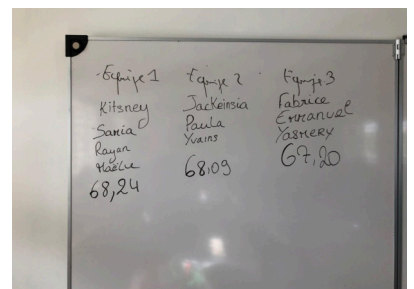 Equipe 1
Kitsney
Samia
Rayan
Maëlie
68,24
Equipe 2
Jackeinsia
Paula
Yvains
68,09
Equipe 3
Fabrice
Emmanuel
Yasmery
67,20